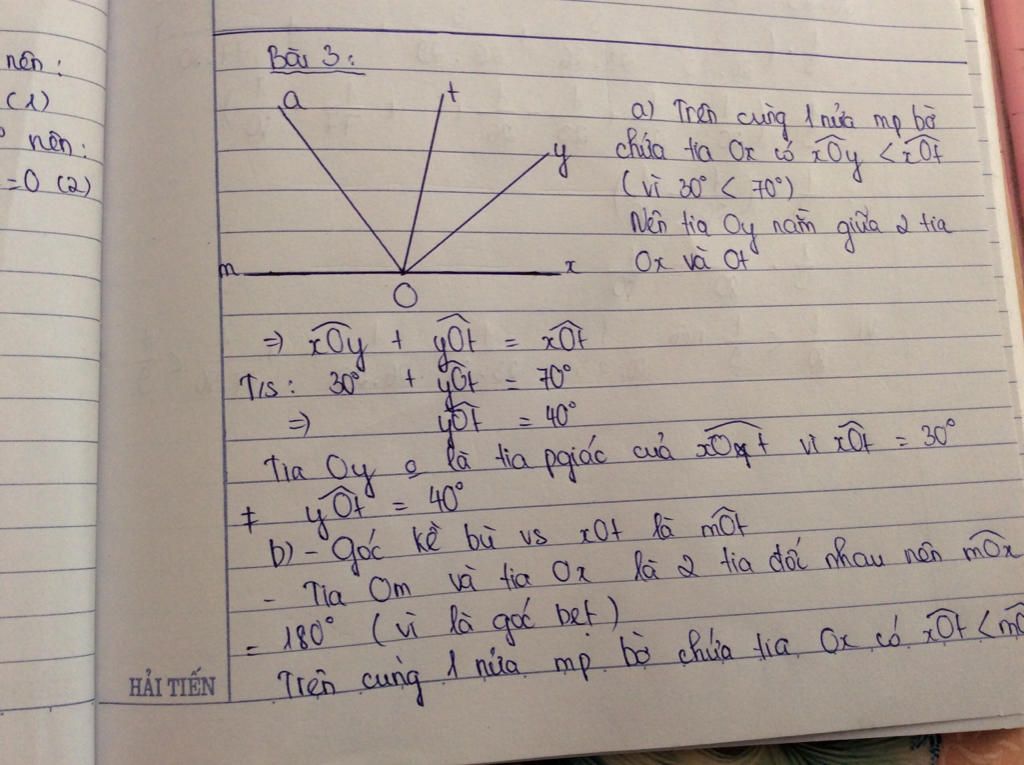 nên:
(1)
nên:
=0 (2)
Bài 3:
a
t
y
m
x
O
a) Trên cùng 1 nửa mp bờ
chứa tia Ox có xOy < xOt
(vì 30° < 70°)
Nên tia Oy nằm giữa 2 tia
Ox và Ot
=> xOy + yOt = xOt
T/s: 30° + yOt = 70°
=> yOt = 40°
Tia Oy o là tia pgiác của xOt vì xOt = 30°
≠ yOt = 40°
b) - Góc kề bù vs xOt là mOt
- Tia Om và tia Ox là 2 tia đối nhau nên mOx
= 180° (vì là góc bẹt)
Trên cùng 1 nửa mp bờ chứa tia Ox có xOt < mO
HẢI TIẾN